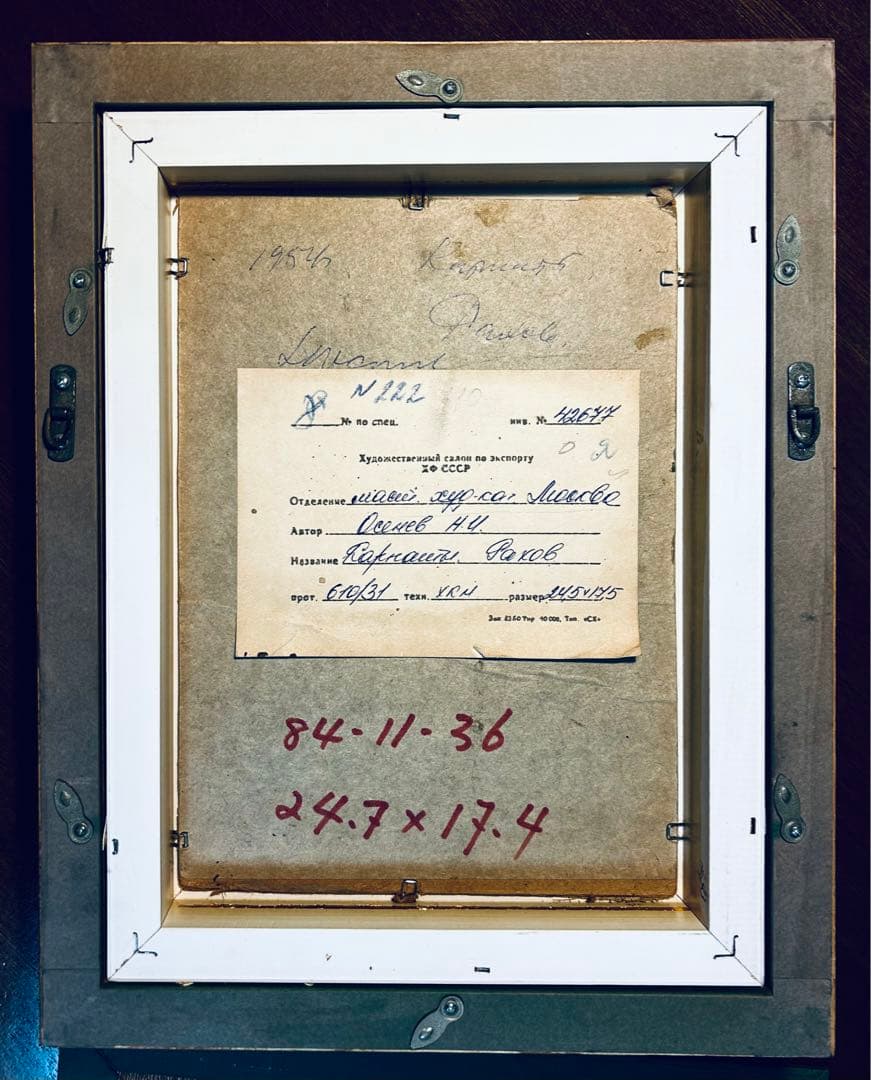 1954г. Карпаты
Рахов.
N 222
№ по спец. инв. № 42677
Художественный салон по экспорту
ХФ СССР
Отделение худ-ка. Москва
Автор Осенев Н.И.
Название Карпаты. Рахов
прот. 610/31 техн. ХКМ размер 24,5х17,5
Зак 8350 Тир 10 000, Тип. «СХ»
84-11-36
24.7 x 17.4